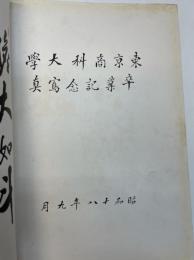 東京商科大學
卒業記念寫真
昭和十八年九月